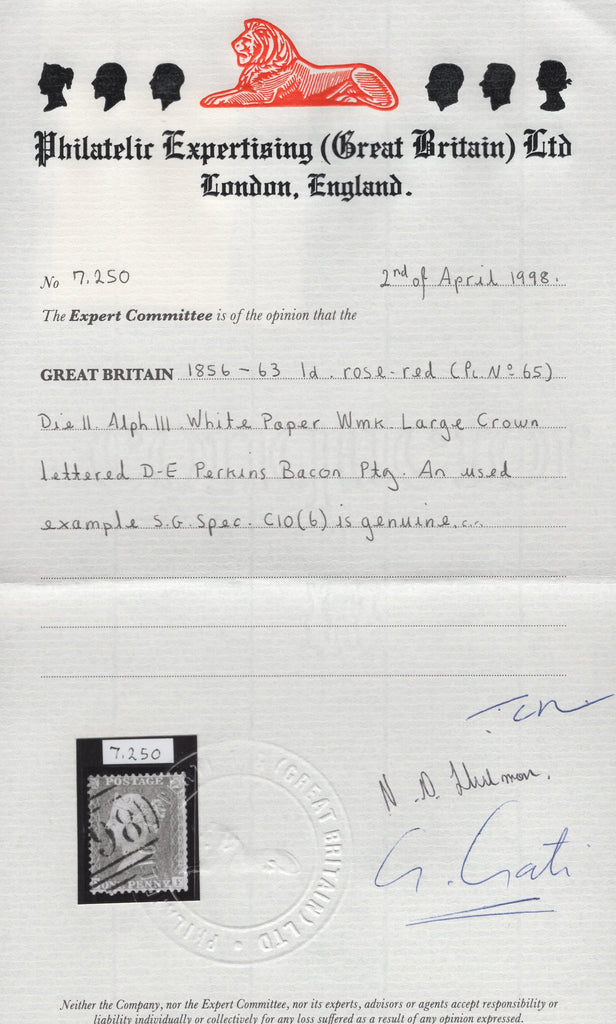 Philatelic Expertising (Great Britain) Ltd
London, England.
No 7.250
2nd of April 1998.
The Expert Committee is of the opinion that the
GREAT BRITAIN 1856-63 1d. rose-red (Pl. No 65)
Die II. Alph III. White Paper Wmk. Large Crown
lettered D-E Perkins Bacon Ptg. An used
example S.G. Spec. C10(6) is genuine.
7.250
POSTAGE
98
ONE PENNY
(GREAT BRITAIN) LTD
G. Gati
Neither the Company, nor the Expert Committee, nor its experts, advisors or agents accept responsibility or
liability individually or collectively for any loss suffered as a result of any opinion expressed.